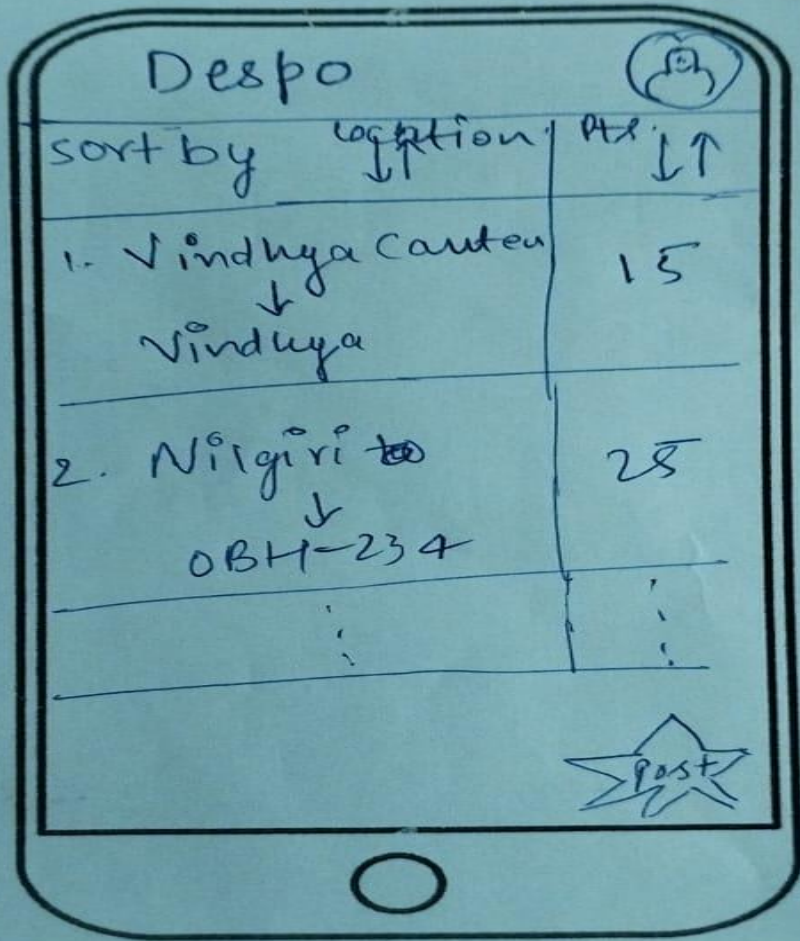 Despo
sort by location ↓↑ Pts. ↓↑
1. Vindhya Canteen 15
↓
Vindhya
2. Nilgiri 25
↓
OBH-234
post